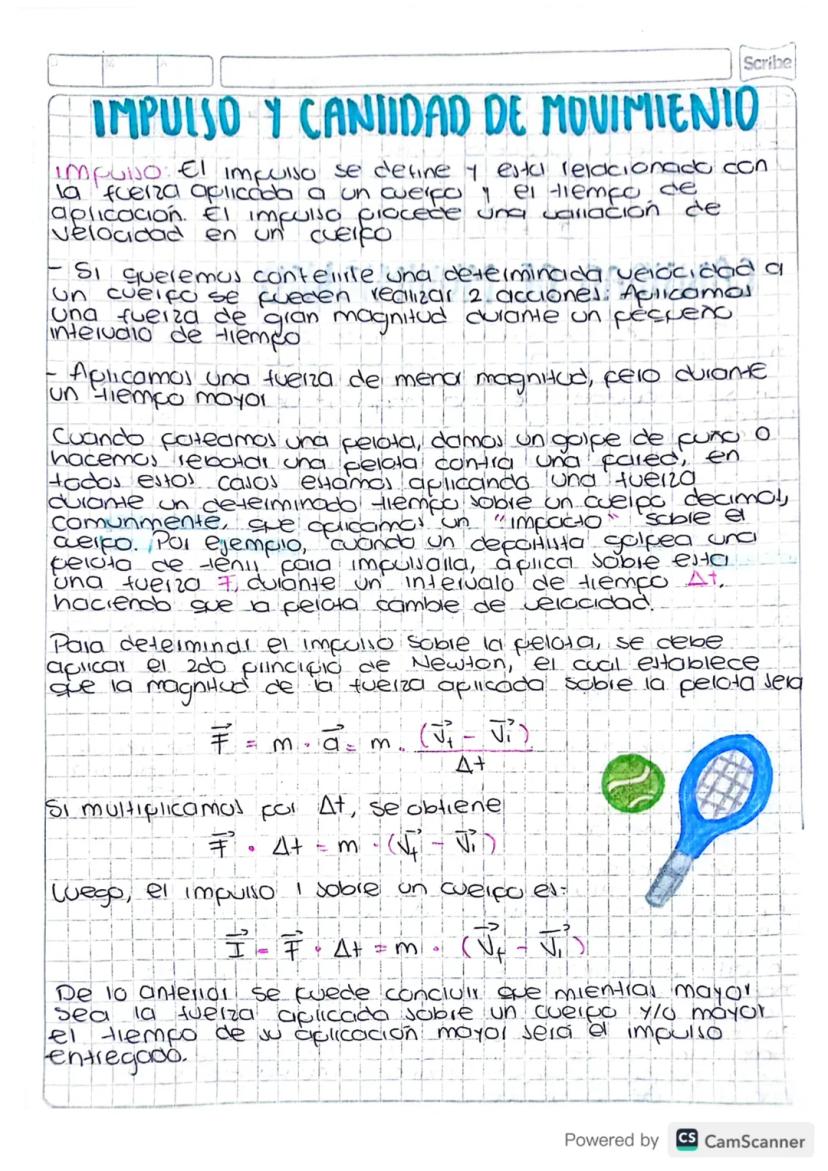 Scribe
IMPULSO Y CANTIDAD DE MOVIMIENTO
Impulso: El impulso se define y esta relacionado con
la fuerza aplicada a un cuerpo y el tiempo de
aplicación. El impulso procede una variación de
velocidad en un cuerpo
- Si queremos conferirle una determinada velocidad a
un cuerpo se pueden realizar 2 acciones: Aplicamos
una fuerza de gran magnitud durante un pequeño
intervalo de tiempo
- Aplicamos una fuerza de menor magnitud, pero durante
un tiempo mayor
Cuando pateamos una pelota, damos un golpe de puño o
hacemos rebotar una pelota contra una pared, en
todos estos casos estamos aplicando una fuerza
durante un determinado tiempo sobre un cuerpo decimos,
comunmente, que aplicamos un "impacto" sobre el
cuerpo. Por ejemplo, cuando un deportista golpea una
pelota de tenis para impulsarla, aplica sobre esta
una fuerza F, durante un intervalo de tiempo Δt,
haciendo que la pelota cambie de velocidad.
Para determinar el impulso sobre la pelota, se debe
aplicar el 2do principio de Newton, el cual establece
que la magnitud de la fuerza aplicada sobre la pelota sera
F⃗ = m · a⃗ = m · (V⃗f - V⃗i) / Δt
Si multiplicamos por Δt, se obtiene
F⃗ · Δt = m · (V⃗f - V⃗i)
Luego, el impulso I sobre un cuerpo es:
I⃗ = F⃗ · Δt = m · (V⃗f - V⃗i)
De lo anterior se puede concluir que mientras mayor
sea la fuerza aplicada sobre un cuerpo y/o mayor
el tiempo de su aplicación mayor será el impulso
entregado.
Powered by CS CamScanner